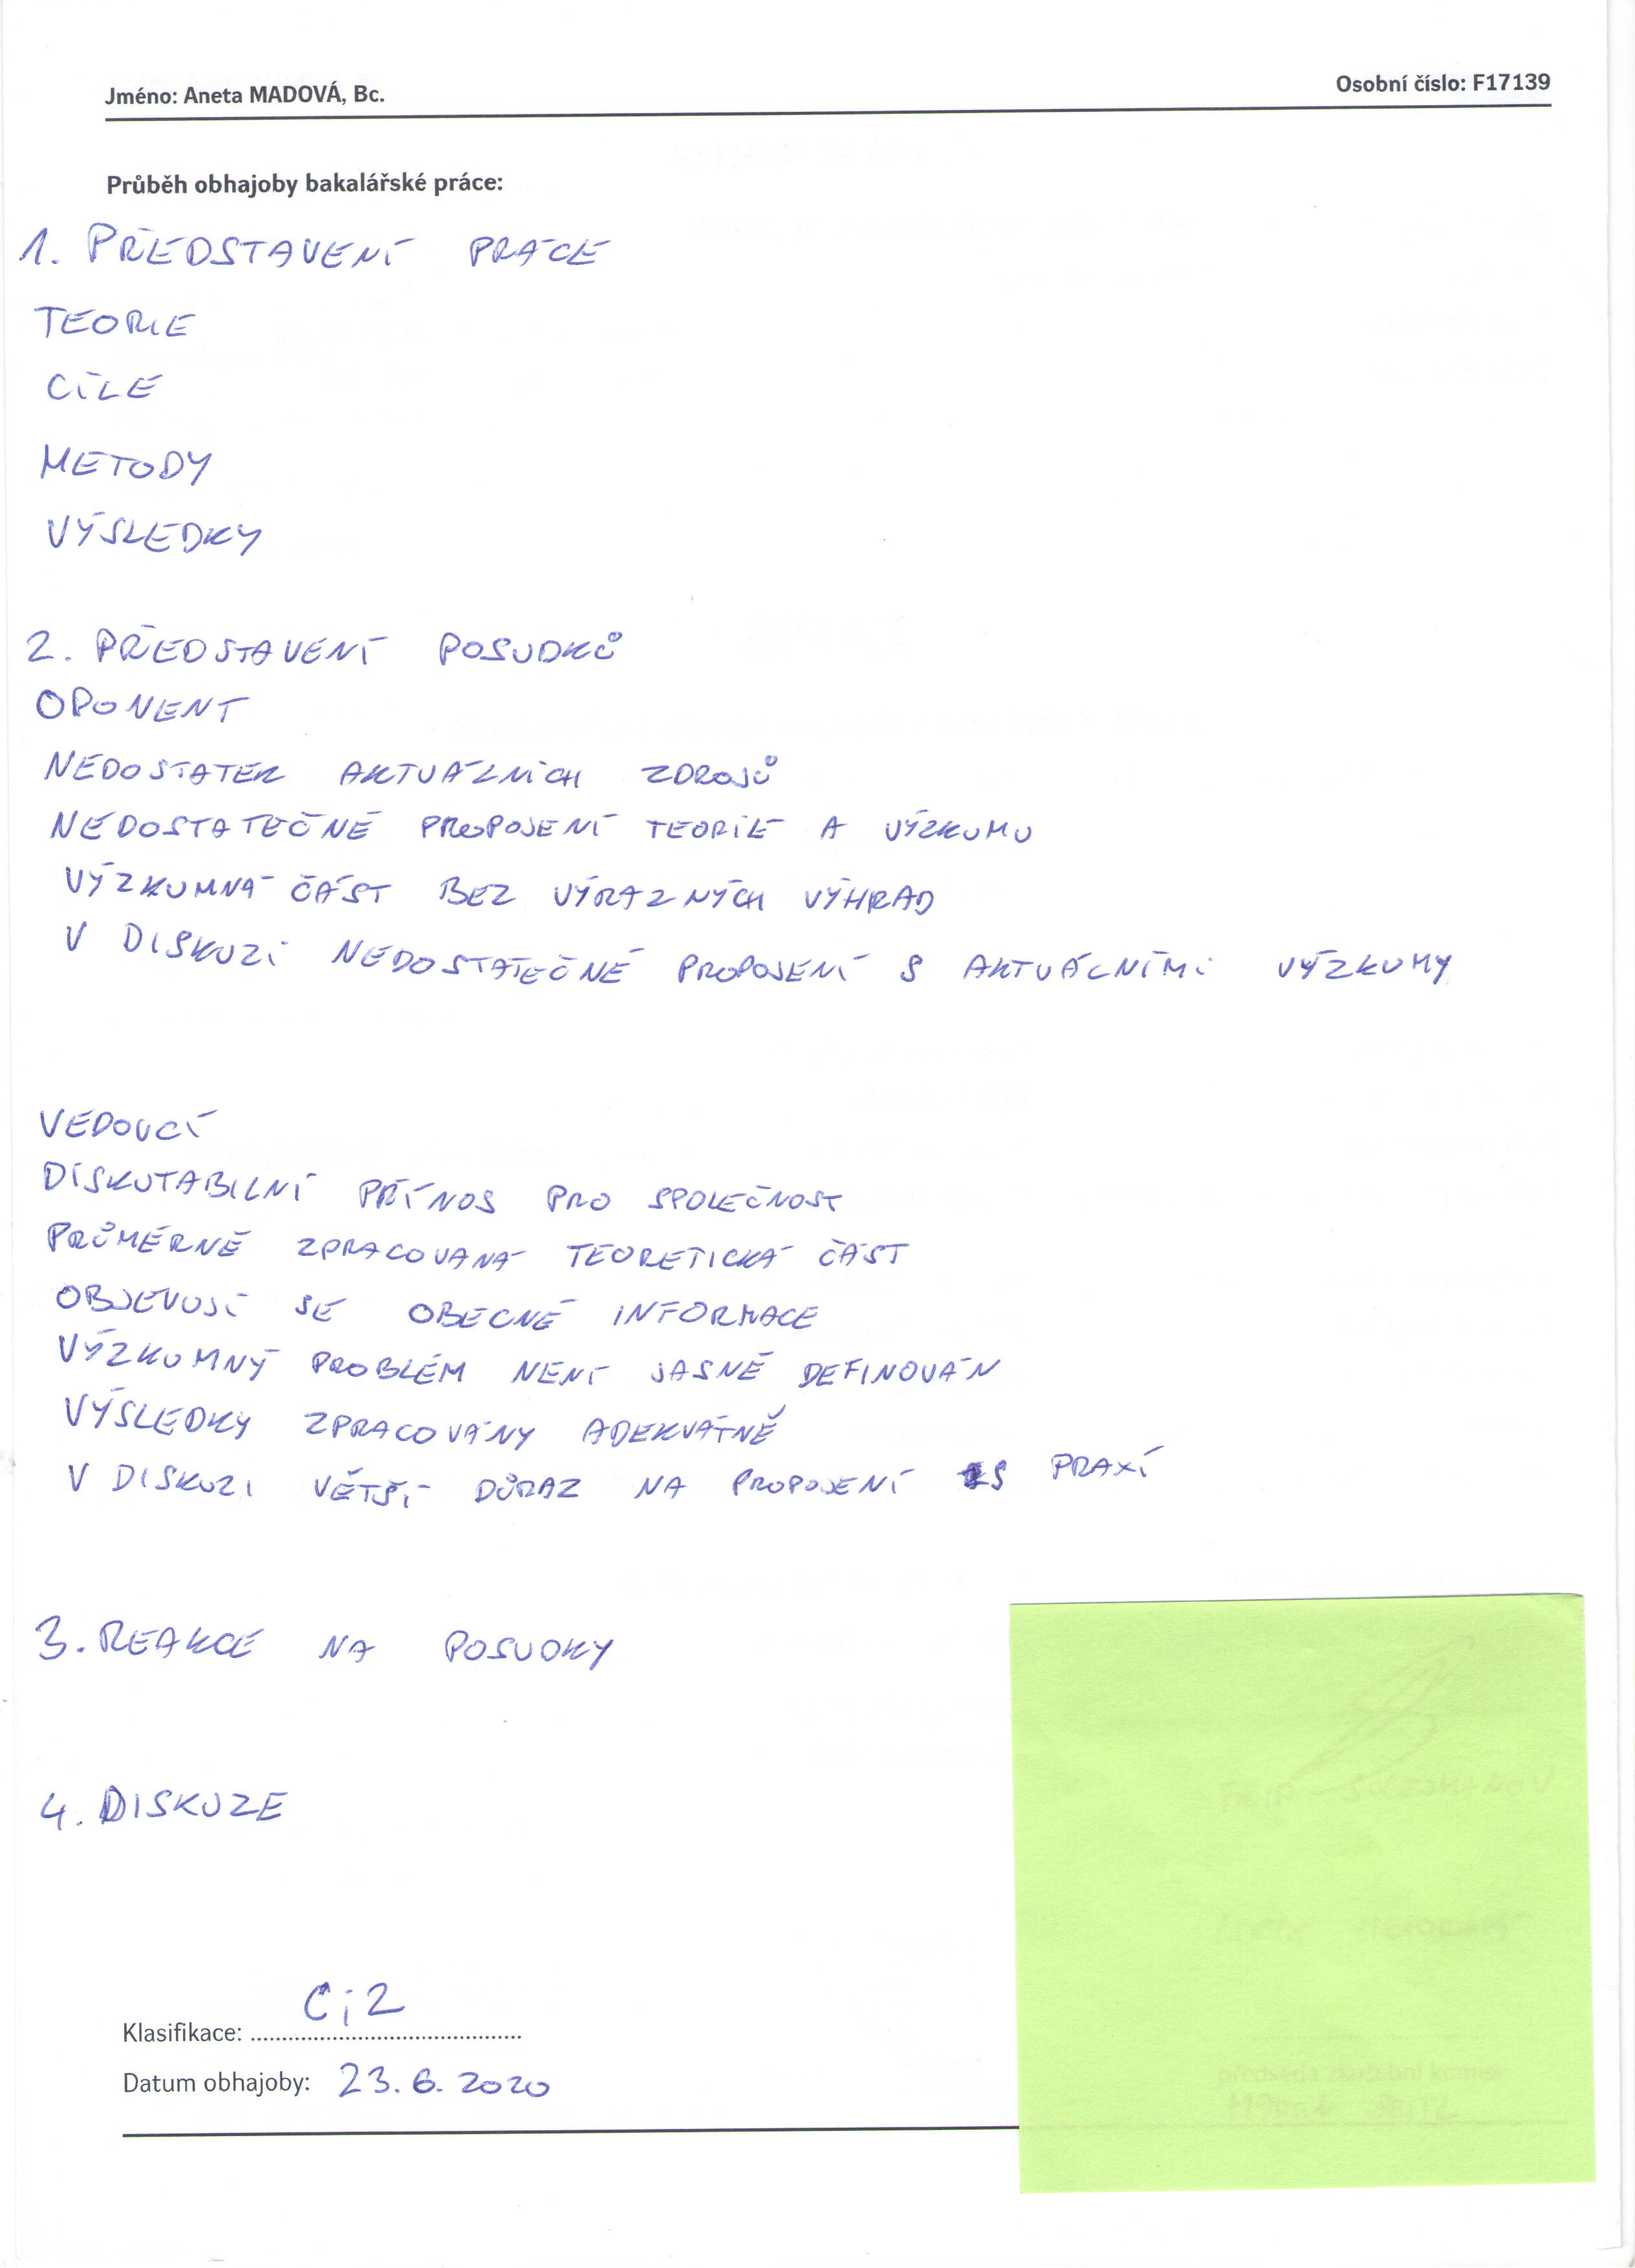 Jméno: Aneta MADOVÁ, Bc.
Osobní číslo: F17139
Průběh obhajoby bakalářské práce:
1. PŘEDSTAVENÍ PRÁCE
TEORIE
CÍLE
METODY
VÝSLEDKY
2. PŘEDSTAVENÍ POSUDKŮ
OPONENT
NEDOSTATEK AKTUÁLNÍCH ZDROJŮ
NEDOSTATEČNÉ PROPOJENÍ TEORIE A VÝZKUMU
VÝZKUMNÁ ČÁST BEZ VÝRAZNÝCH VÝHRAD
V DISKUZI NEDOSTATEČNÉ PROPOJENÍ S AKTUÁLNÍMI VÝZKUMY
VEDOUCÍ
DISKUTABILNÍ PŘÍNOS PRO SPOLEČNOST
PRŮMĚRNĚ ZPRACOVANÁ TEORETICKÁ ČÁST
OBJEVUJÍ SE OBECNÉ INFORMACE
VÝZKUMNÝ PROBLÉM NENÍ JASNĚ DEFINOVÁN
VÝSLEDKY ZPRACOVÁNY ADEKVÁTNĚ
V DISKUZI VĚTŠÍ DŮRAZ NA PROPOJENÍ S PRAXÍ
3. REAKCE NA POSUDKY
4. DISKUZE
Klasifikace: C; 2
Datum obhajoby: 23. 6. 2020